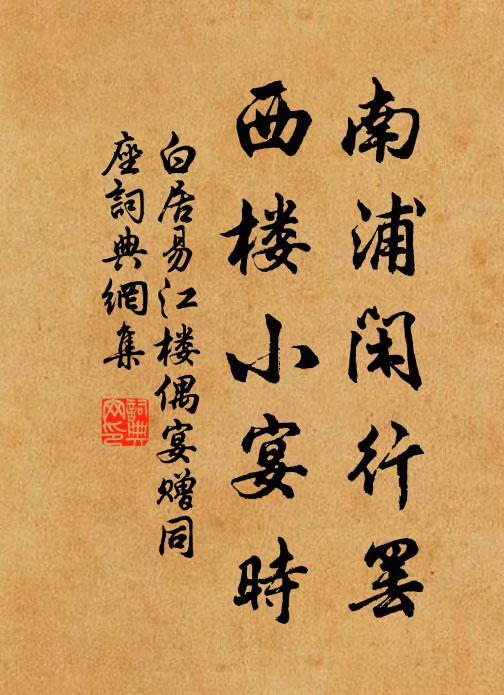 南浦闲行罢
西楼小宴時
白居易江楼偶宴赠同
座詞典網集
詞典
网印